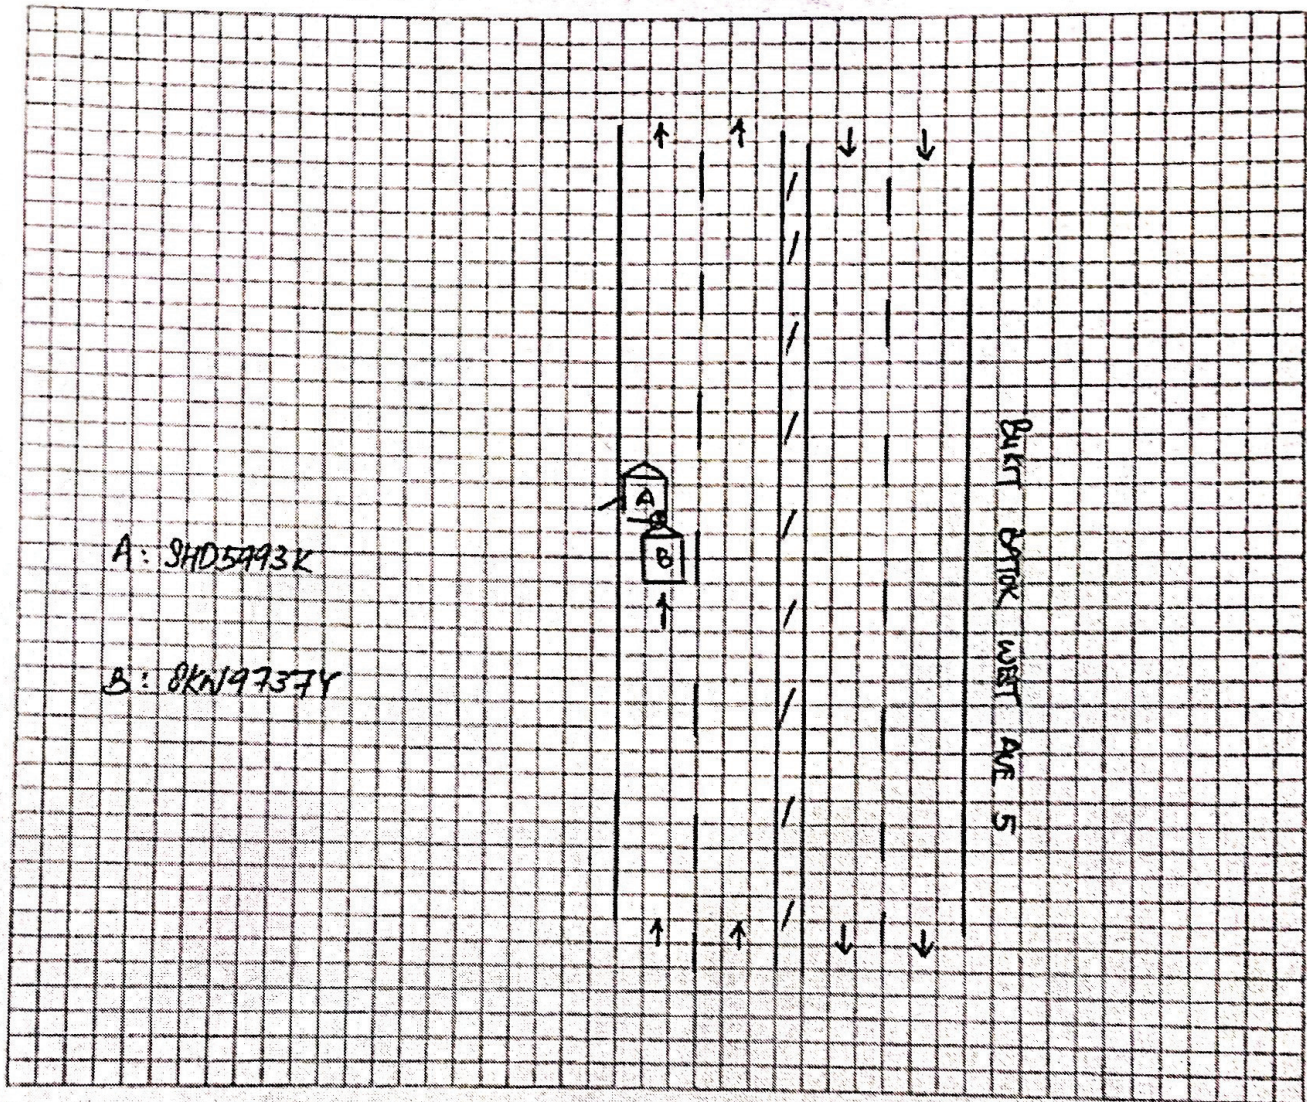 A
B
A: SHD5993K
B: SKW9737Y
BUKIT BATOK WEST AVE 5